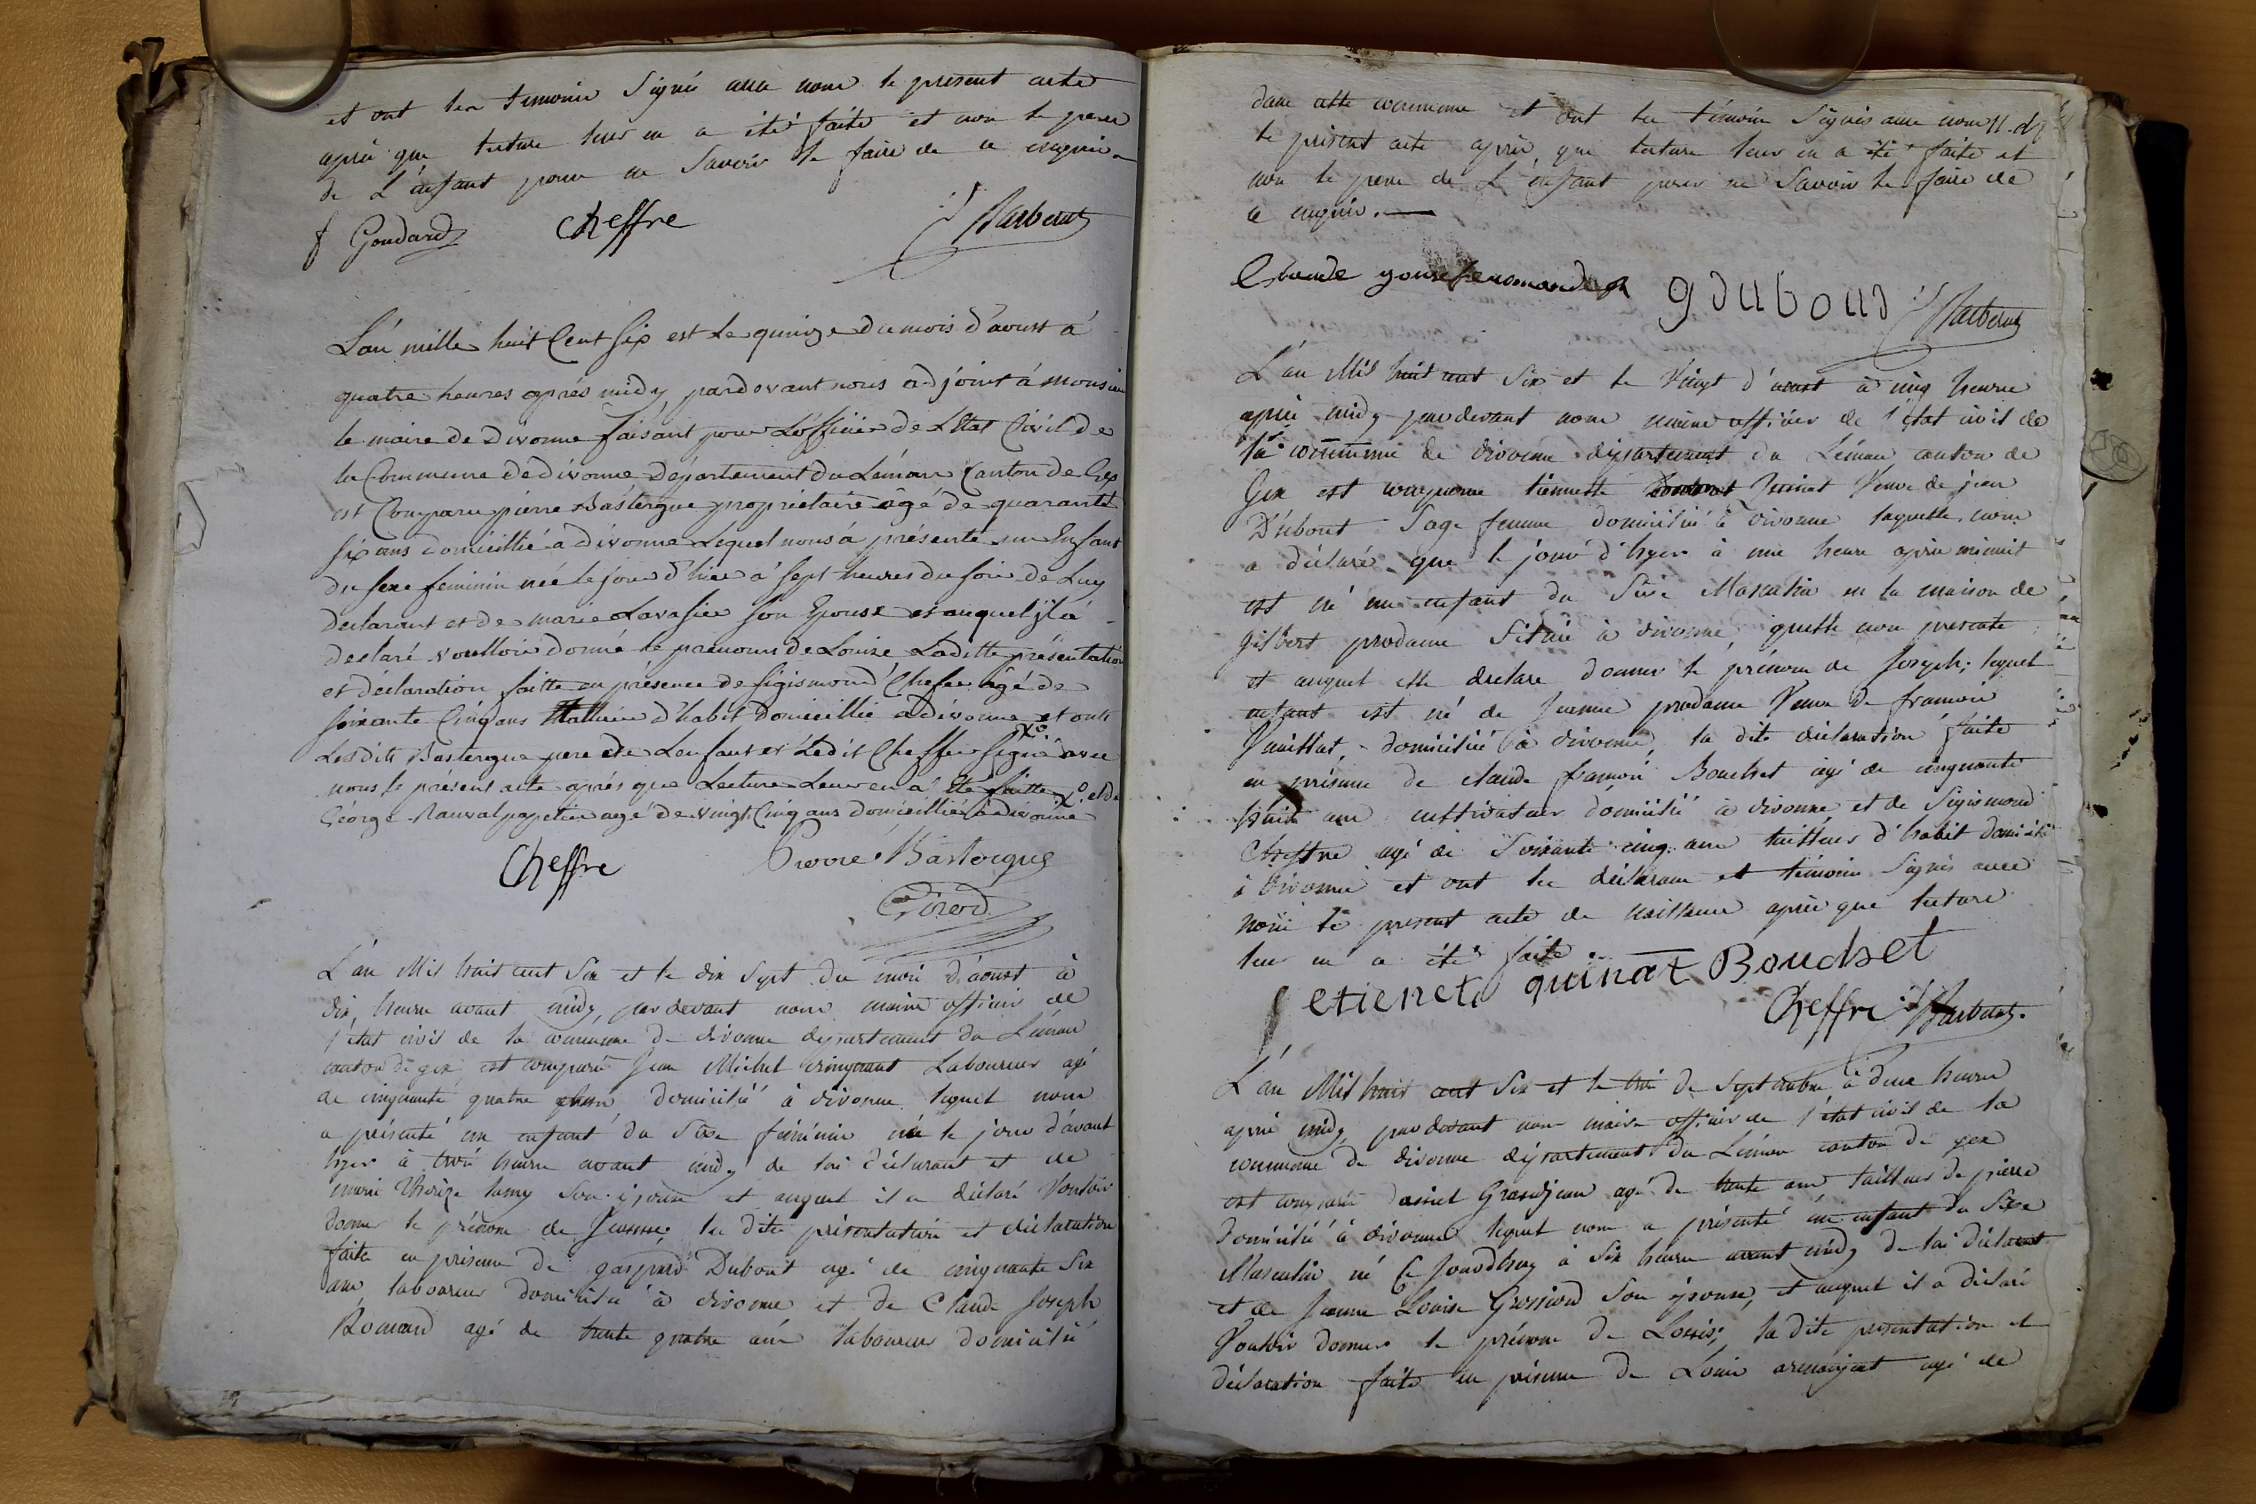 et ont les temoins Signé avec nous le present acte
après que lecture leur en a été faite et non le pere
de L'enfant pour ne Savoir le faire de ce enquis
f Goudard Cheffre Barberat
L'an mille huit Cent Six est Le quinze du mois d'aoust à
quatre heures après midy pardevant nous adjoint à monsieur
le maire de Divonne faisant pour L'officier de L'Etat Civil de
la Commune de divonne Département du Léman Canton de Gex
est Comparu pierre Bastergue propriétaire âgé de quarante
six ans domicillié à divonne Lequel nous à présenté un Enfant
du sexe feminin née le jour d'hier à sept heures du soir de Luy
declarant et de marie Lavasier son Epouse et auquel jl à
declaré voulloir donné le prenoms de Louise Laditte présentation
et déclaration faitte en présence de sigismond Chefre âgé de
soixante Cinq ans tallieur d'habit domicillié à divonne et onts
Lesdits Bastergue pere de Lenfant et Ledit Cheffre signé avec
nous le présent acte après que Lecture Leur en à été faitte et de
George Rauval papetier agé de vingt Cinq ans domicillié à divonne
Cheffre Pierre Bastergue
Girod
L'an Mil huit cent Six et le dix Sept du mois d'aoust à
dix heures avant midy, par devant nous maire officier de
l'état civil de la commune de divonne département du Léman
canton de gex est comparu Jean Michel Laboureur agé
de cinquante quatre domicilié à divonne lequel nous
a présenté un enfant du Sexe féminin né le jour d'avant
hyer à trois heures avant midy de lui déclarant et de
marie Therèze lamy Son épouse et auquel il a déclaré Vouloir
donner le prénom de Jeanne; les dites présentation et déclaration
faite en présence de gaspard Dubout agé de cinquante Six
ans laboureur domicilié à divonne et de Claude Joseph
Romand agé de trente quatre ans laboureur domicilié
dans cette commune et ont les témoins Signés avec nous
le présent acte après que lecture leur en a été faite et
non le pere de L'enfant pour ne Savoir le faire de
ce enquis.
Claude gousef romand g duboud Barberat
L'an Mil huit cent Six et le Vingt d'aoust à cinq heures
après midy pardevant nous maire officier de l'état civil de
la commune de divonne département du Léman canton de
Gex est comparue tiennette Juinet Veuve de jean
Dubout Sage femme domiciliée à divonne laquelle nous
a déclaré que le jour d'hyer à une heure après minuit
est né un enfant du Sexe Masculin en la maison de
gisbert prodame Située à divonne quelle nous presente
et auquel elle declare donner le prénom de Joseph; lequel
enfant est né de Jeanne prodame Veuve de francois
domiciliée à divonne, la dite déclaration faite
en présence de claude francois Bouchet agé de cinquante
huit ans cultivateur domicilié à divonne et de Sigismond
Cheffre agé de Soixante cinq ans tailleur d'habit domicilié
à divonne et ont les déclarans et témoins Signés avec
nous le present acte de naissance après que lecture
leur en a été faite
etienete quinat Bouchet
Cheffre Barberat
L'an Mil huit cent Six et le trois de Septembre à deux heures
après midy pardevant nous maire officier de l'état civil de la
commune de divonne département du Léman canton de gex
est comparu daniel Grandjean agé de trente ans tailleur de pierre
domicilié à divonne lequel nous a présenté un enfant du Sexe
Masculin né Ce Jourdhuy à Six heures avant midy de lui déclarant
et de Jeanne Louise Grossiord Son épouse, et auquel il a déclaré
Vouloir donner le prénom de Louis; la dite présentation et
déclaration faite en présence de Louis agé de